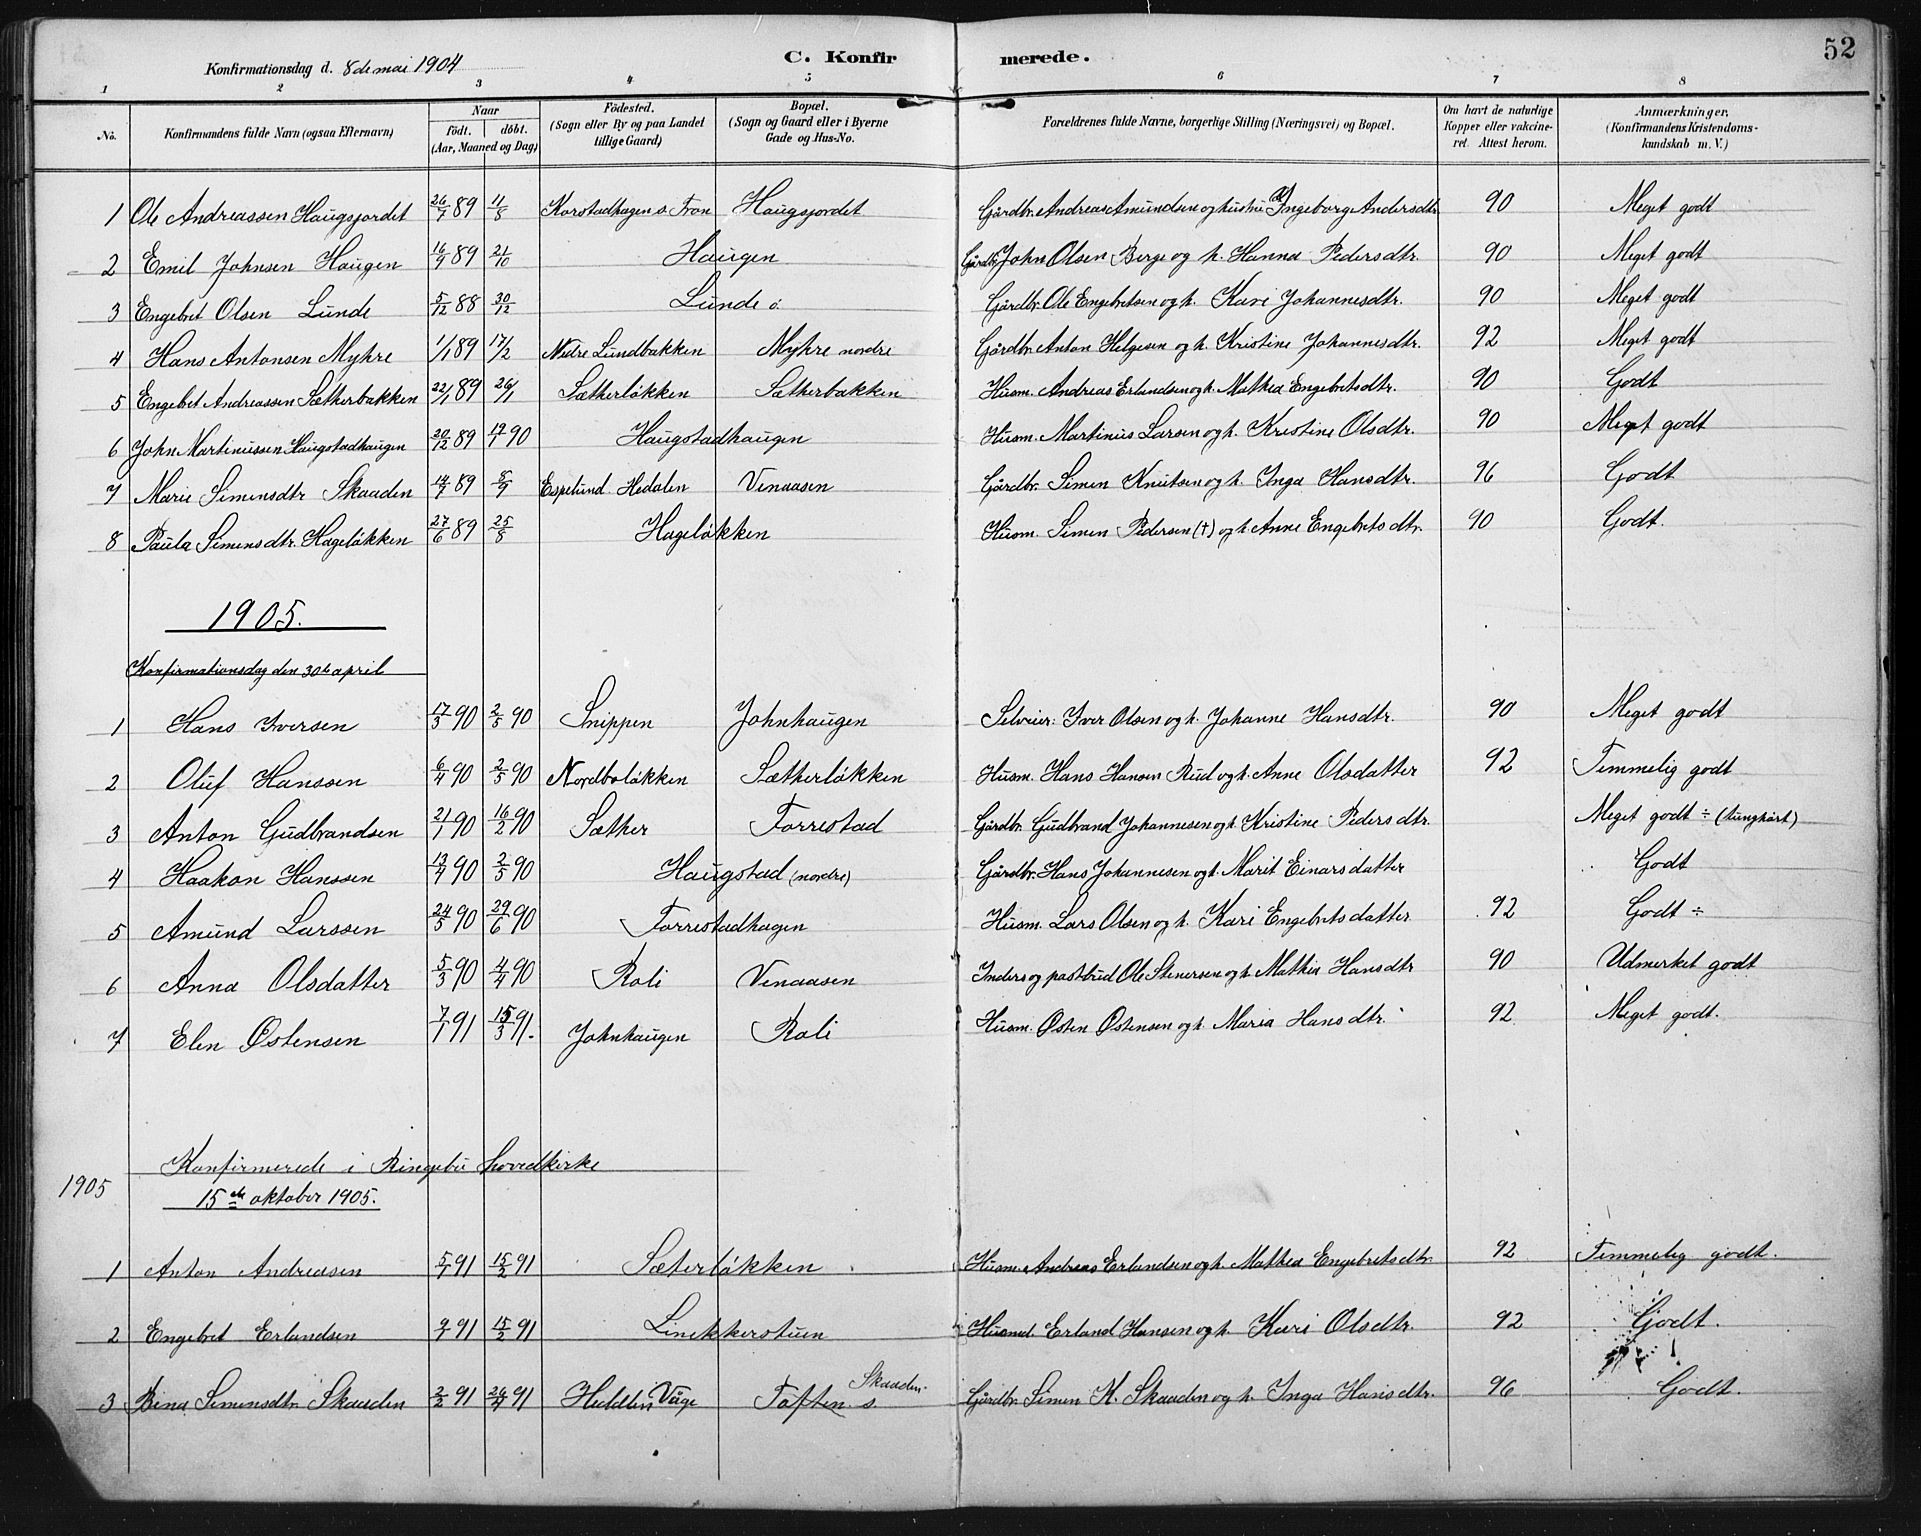 52
Konfirmationsdag d. 8de mai 1904 C. Konfirmerede.
1 2 3 4 5 6 7 8
No. Konfirmandens fulde Navn (ogsaa Efternavn) Naar født. døbt. (Aar, Maaned og Dag) Fødested. (Sogn eller By og paa Landet tillige Gaard) Bopæl. (Sogn og Gaard eller i Byerne Gade og Hus-No. Forældrenes fulde Navne, borgerlige Stilling (Næringsvei) og Bopæl. Om havt de naturlige Kopper eller vakcineret. Attest herom. Anmærkninger. (Konfirmandens Kristendomskundskab m. V.)
1 Ole Andreassen Haugsjordet 26/7 89 11/8 Korstadhagen s. Fron Haugsjordet Gårdbr. Andreas Amundsen og hustru Ingeborg Andersdtr. 90 Meget godt
2 Emil Johnsen Haugen 16/9 89 21/10 Haugen Gårdbr. John Olsen Berge og h. Hanna Pedersdtr. 90 Meget godt
3 Engebret Olsen Lunde 5/12 88 30/12 Lunde ö. Gårdbr. Ole Engebretsen og h. Kari Johannesdtr. 90 Meget godt
4 Hans Antonsen Myhre 1/1 89 17/2 Nedre Lundbakken Myhre nordre Gårdbr. Anton Helgesen og h. Kristine Johannesdtr. 92 Meget godt
5 Engebret Andreassen Sætherbakken 22/1 89 26/1 Sætherløkken Sætherbakken Husm. Andreas Erlandsen og h. Mathea Engebretsdtr. 90 Godt
6 John Martinussen Haugstadhaugen 20/12 89 19/1 90 Haugstadhaugen Husm. Martinus Larsen og h. Kristine Olsdtr. 90 Meget godt
7 Marie Simensdtr Skaaden 14/7 89 8/9 Espelund Hedalen Venaasen Gårdbr. Simen Knutsen og h. Inga Hansdtr. 96 Godt
8 Paula Simensdtr. Hageløkken 27/6 89 25/8 Hageløkken Husm. Simen Pedersen (†) og h. Anne Engebretsdtr. 90 Godt.
1905.
Konfirmationsdag den 30te april
1 Hans Iversen 17/3 90 2/5 90 Snippen Johnhaugen Selveier: Iver Olsen og h. Johanne Hansdtr. 90 Meget godt
2 Oluf Hanssen 6/4 90 2/5 90 Nordboløkken Sætherløkken Husm. Hans Hansen Rud og h. Anne Olsdatter 92 Temmelig godt
3 Anton Gudbrandsen 21/1 90 16/2 90 Sæther Forrestad Gårdbr. Gudbrand Johannesen og h. Kristine Pedersdtr. Meget godt ÷ (tunghørt)
4 Haakon Hanssen 13/4 90 2/5 90 Haugstad (nordre) Gårdbr. Hans Johannesen og h. Marit Einarsdatter Godt
5 Amund Larssen 24/5 90 29/6 90 Forrestadhagen Husm. Lars Olsen og h. Kari Engebretsdatter 92 Godt ÷
6 Anna Olsdatter 5/3 90 4/4 90 Roli Venaasen Inders og postbud Ole Stenersen og h. Mathia Hansdtr 90 Udmerket godt
7 Elen Østensen 7/1 91 15/3 91. Johnhaugen Roli Husm. Østen Østensen og h. Maria Hansdtr. 92 Meget godt.
Konfirmerede i Ringebu hovedkirke
1905 15de oktober 1905.
1 Anton Andreasen 5/1 91 15/2 91 Sæterløkken Husm. Andreas Erlandsen og h. Mathea Engebretsdtr. 92 Temmelig godt.
2 Engebret Erlandsen 2/1 91 15/2 91 Linekkerstuen Husmd. Erland Hansen og h. Kari Olsdtr. 92 Godt.
3 Bina Simensdtr. Skaaden 2/2 91 26/4 91 Våge Toften s. Skaaden. Gårdbr. Simen K. Skaaden og h. Inga Hansdtr. 96 Godt.